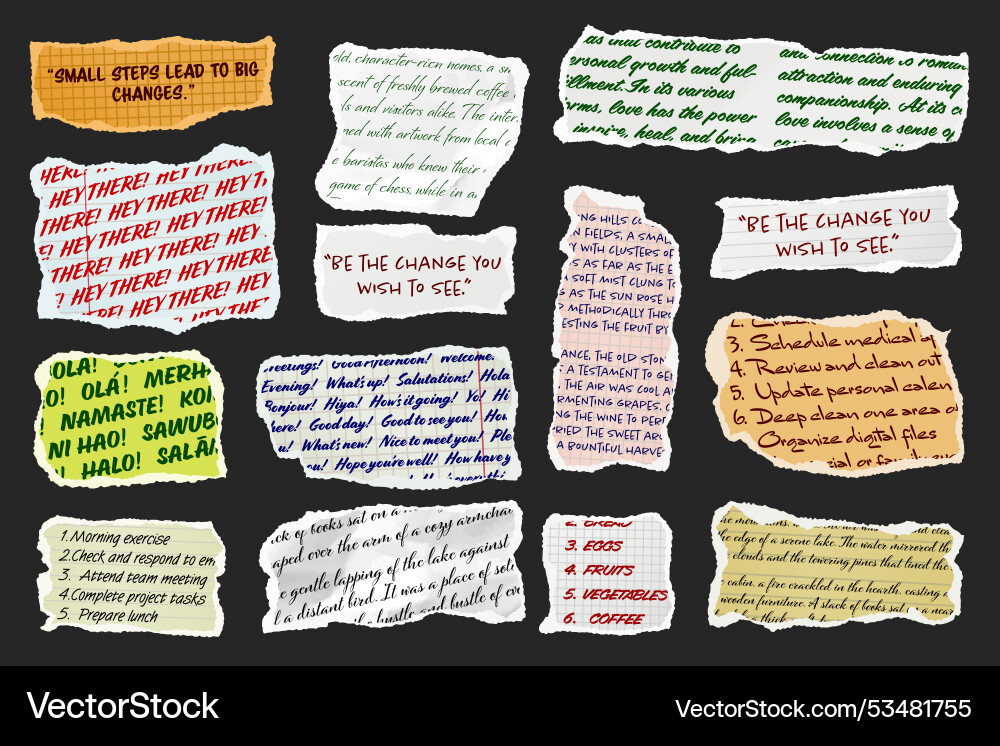 "SMALL STEPS LEAD TO BIG
CHANGES."
old, character-rich homes, a sm
scent of freshly brewed coffee
ls and visitors alike. The inter
ned with artwork from local
e baristas who knew their
game of chess, while in a
as that contribute to
ersonal growth and ful-
illment. In its various
orms, love has the power
inspire, heal, and bring
and connection to roman
attraction and enduring
companionship. At its c
love involves a sense of
HERE! HEY THERE! HEY THERE!
HEY THERE! HEY THERE! HEY T
THERE! HEY THERE! HEY THERE!
E! HEY THERE! HEY THERE! HEY
THERE! HEY THERE! HEY THERE
! HEY THERE! HEY THERE! HEY
RE! HEY THERE! HEY THERE!
HEY THE
"BE THE CHANGE YOU
WISH TO SEE."
NG HILLS
N FIELDS, A SMAL
Y WITH CLUSTERS OF
S AS FAR AS THE E
SOFT MIST CLUNG TO
G AS THE SUN ROSE H
METHODICALLY THRO
ESTING THE FRUIT BY
ANCE, THE OLD STON
A TESTAMENT TO GE
THE AIR WAS COOL A
RMENTING GRAPES,
NG THE WINE TO PER
RIED THE SWEET ARO
A BOUNTIFUL HARVE
"BE THE CHANGE YOU
WISH TO SEE."
3. Schedule medical
4. Review and clean out
5. Update personal calen
6. Deep clean one area o
Organize digital files
cial or family eve
OLA!
O! OLÁ! MERH
NAMASTE! KO
NI HAO! SAWUB
! HALO! SALĀ
reetings! Good afternoon! Welcome.
Evening! What's up! Salutations! Hola
Bonjour! Hiya! How's it going! Yo! Hi
here! Good day! Good to see you! How
u! What's new! Nice to meet you! Ple
ou! Hope you're well! How have y
1. Morning exercise
2. Check and respond to em
3. Attend team meeting
4. Complete project tasks
5. Prepare lunch
ck of books sat on a
aped over the arm of a cozy armchai
e gentle lapping of the lake against
a distant bird. It was a place of soli
hustle and bustle of eve
2. BREAD
3. EGGS
4. FRUITS
5. VEGETABLES
6. COFFEE
he mountains,
he edge of a serene lake. The water mirrored th
clouds and the towering pines that lined the
cabin, a fire crackled in the hearth, casting a
wooden furniture. A stack of books sat a near
VectorStock®
VectorStock.com/53481755